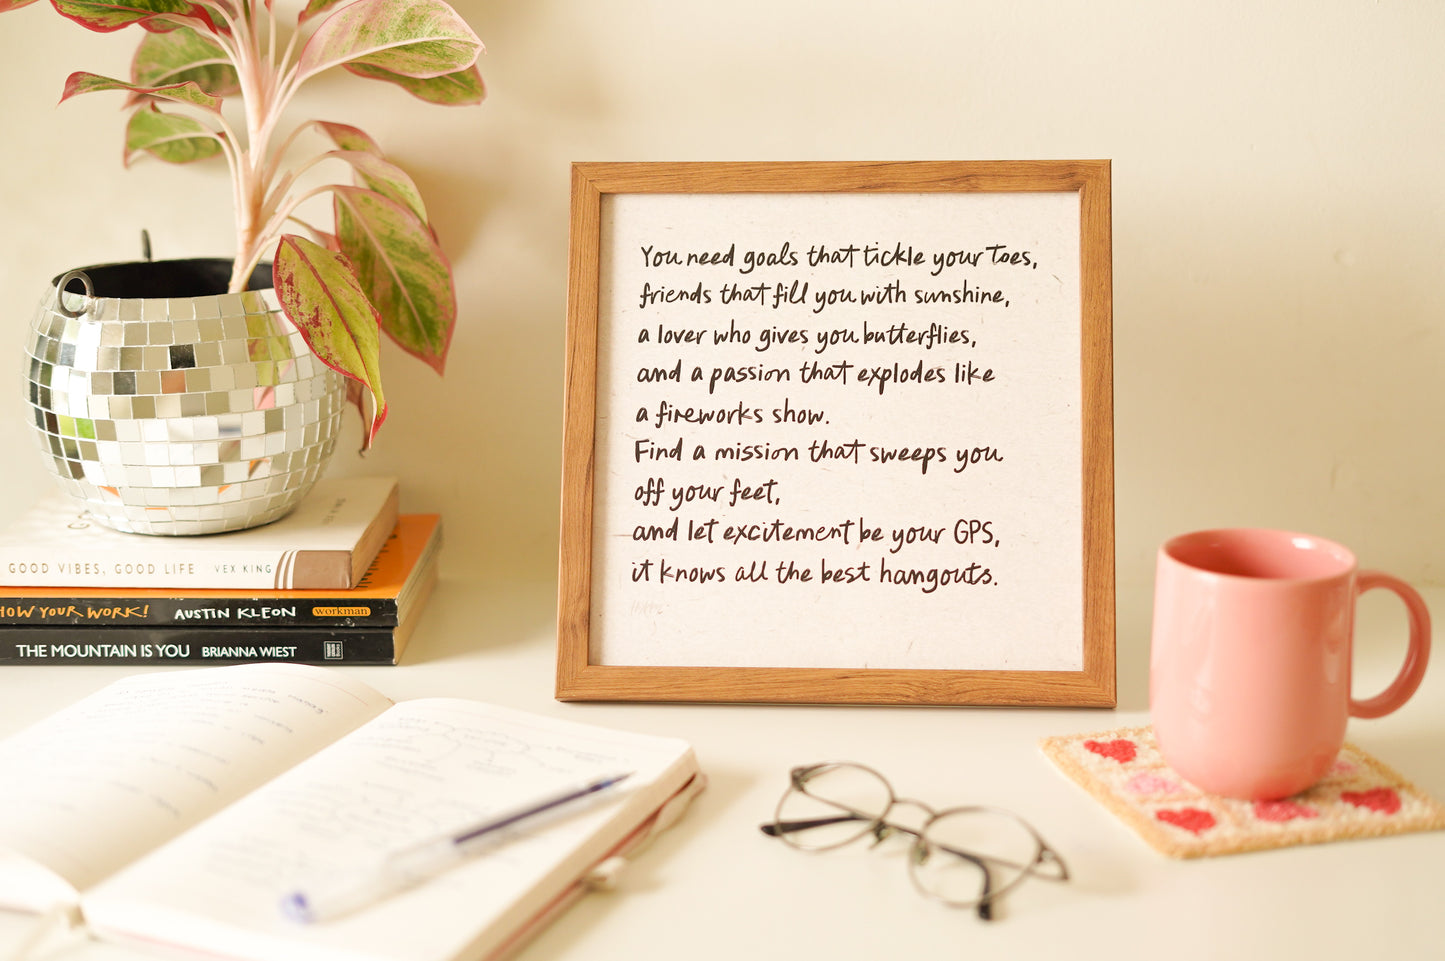 You need goals that tickle your Toes,
friends that fill you with sunshine,
a lover who gives you butterflies,
and a passion that explodes like
a fireworks show.
Find a mission that sweeps you
off your feet,
and let excitement be your GPS,
it knows all the best hangouts.
GOOD VIBES, GOOD LIFE VEX KING
HOW YOUR WORK! AUSTIN KLEON workman
THE MOUNTAIN IS YOU BRIANNA WIEST